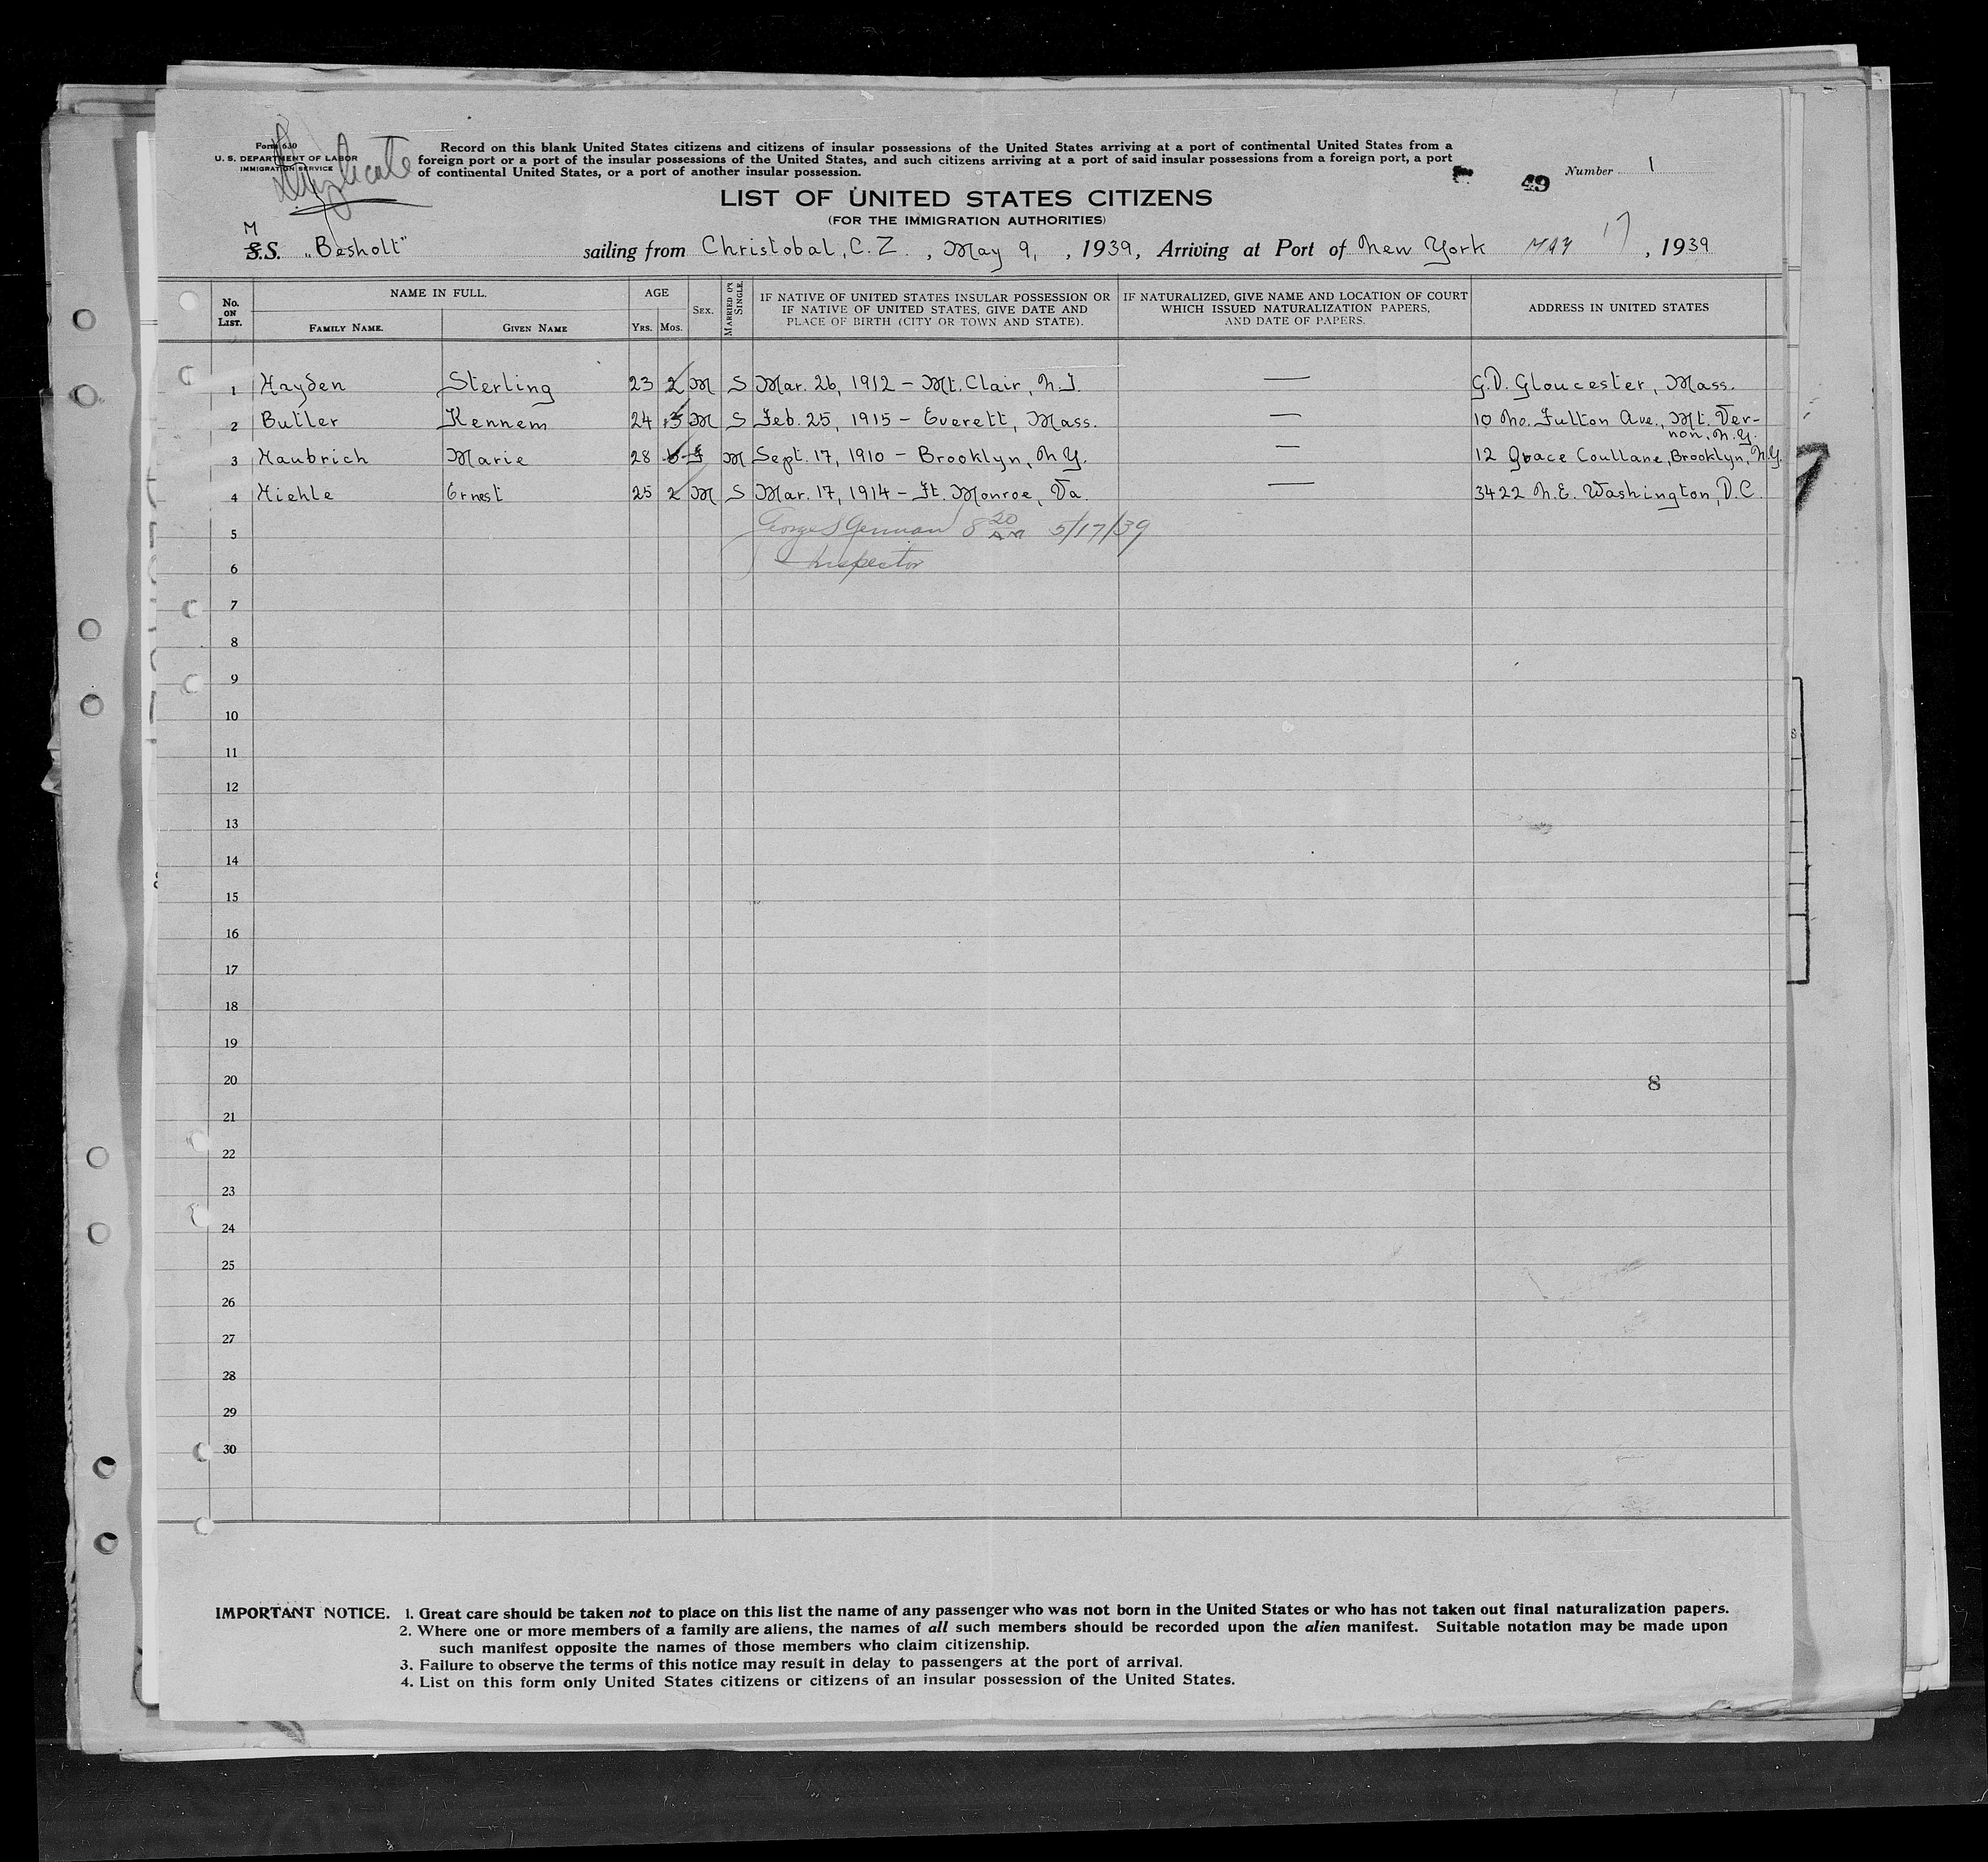 Form 630
U. S. DEPARTMENT OF LABOR
IMMIGRATION SERVICE
Duplicate
Record on this blank United States citizens and citizens of insular possessions of the United States arriving at a port of continental United States from a
foreign port or a port of the insular possessions of the United States, and such citizens arriving at a port of said insular possessions from a foreign port, a port
of continental United States, or a port of another insular possession.
49
Number 1
LIST OF UNITED STATES CITIZENS
(FOR THE IMMIGRATION AUTHORITIES)
M
S.S. "Besholt" sailing from Christobal, C. Z. , May 9, , 1939, Arriving at Port of New York MAY 17 , 1939
No. ON LIST. NAME IN FULL. FAMILY NAME. GIVEN NAME AGE YRS. MOS. SEX. MARRIED OR SINGLE. IF NATIVE OF UNITED STATES INSULAR POSSESSION OR IF NATIVE OF UNITED STATES, GIVE DATE AND PLACE OF BIRTH (CITY OR TOWN AND STATE). IF NATURALIZED, GIVE NAME AND LOCATION OF COURT WHICH ISSUED NATURALIZATION PAPERS, AND DATE OF PAPERS. ADDRESS IN UNITED STATES
1 Hayden Sterling 23 2 M S Mar. 26, 1912 – Mt. Clair, N.J. — G.D. Gloucester, Mass.
2 Butler Kennem 24 3 M S Feb. 25, 1915 – Everett, Mass. — 10 No. Fulton Ave., Mt. Ver-
non, N.Y.
3 Haubrich Marie 28 6 F M Sept. 17, 1910 – Brooklyn, N.Y. — 12 Grace Coullane, Brooklyn, N.Y.
4 Hiehle Ernest 25 2 M S Mar. 17, 1914 – Ft. Monroe, Va. — 3422 N.E. Washington, D.C.
5 George S German 8 20 AM 5/17/39
6 Inspector
7
8
9
10
11
12
13
14
15
16
17
18
19
20 8
21
22
23
24
25
26
27
28
29
30
IMPORTANT NOTICE. 1. Great care should be taken not to place on this list the name of any passenger who was not born in the United States or who has not taken out final naturalization papers.
2. Where one or more members of a family are aliens, the names of all such members should be recorded upon the alien manifest. Suitable notation may be made upon
such manifest opposite the names of those members who claim citizenship.
3. Failure to observe the terms of this notice may result in delay to passengers at the port of arrival.
4. List on this form only United States citizens or citizens of an insular possession of the United States.